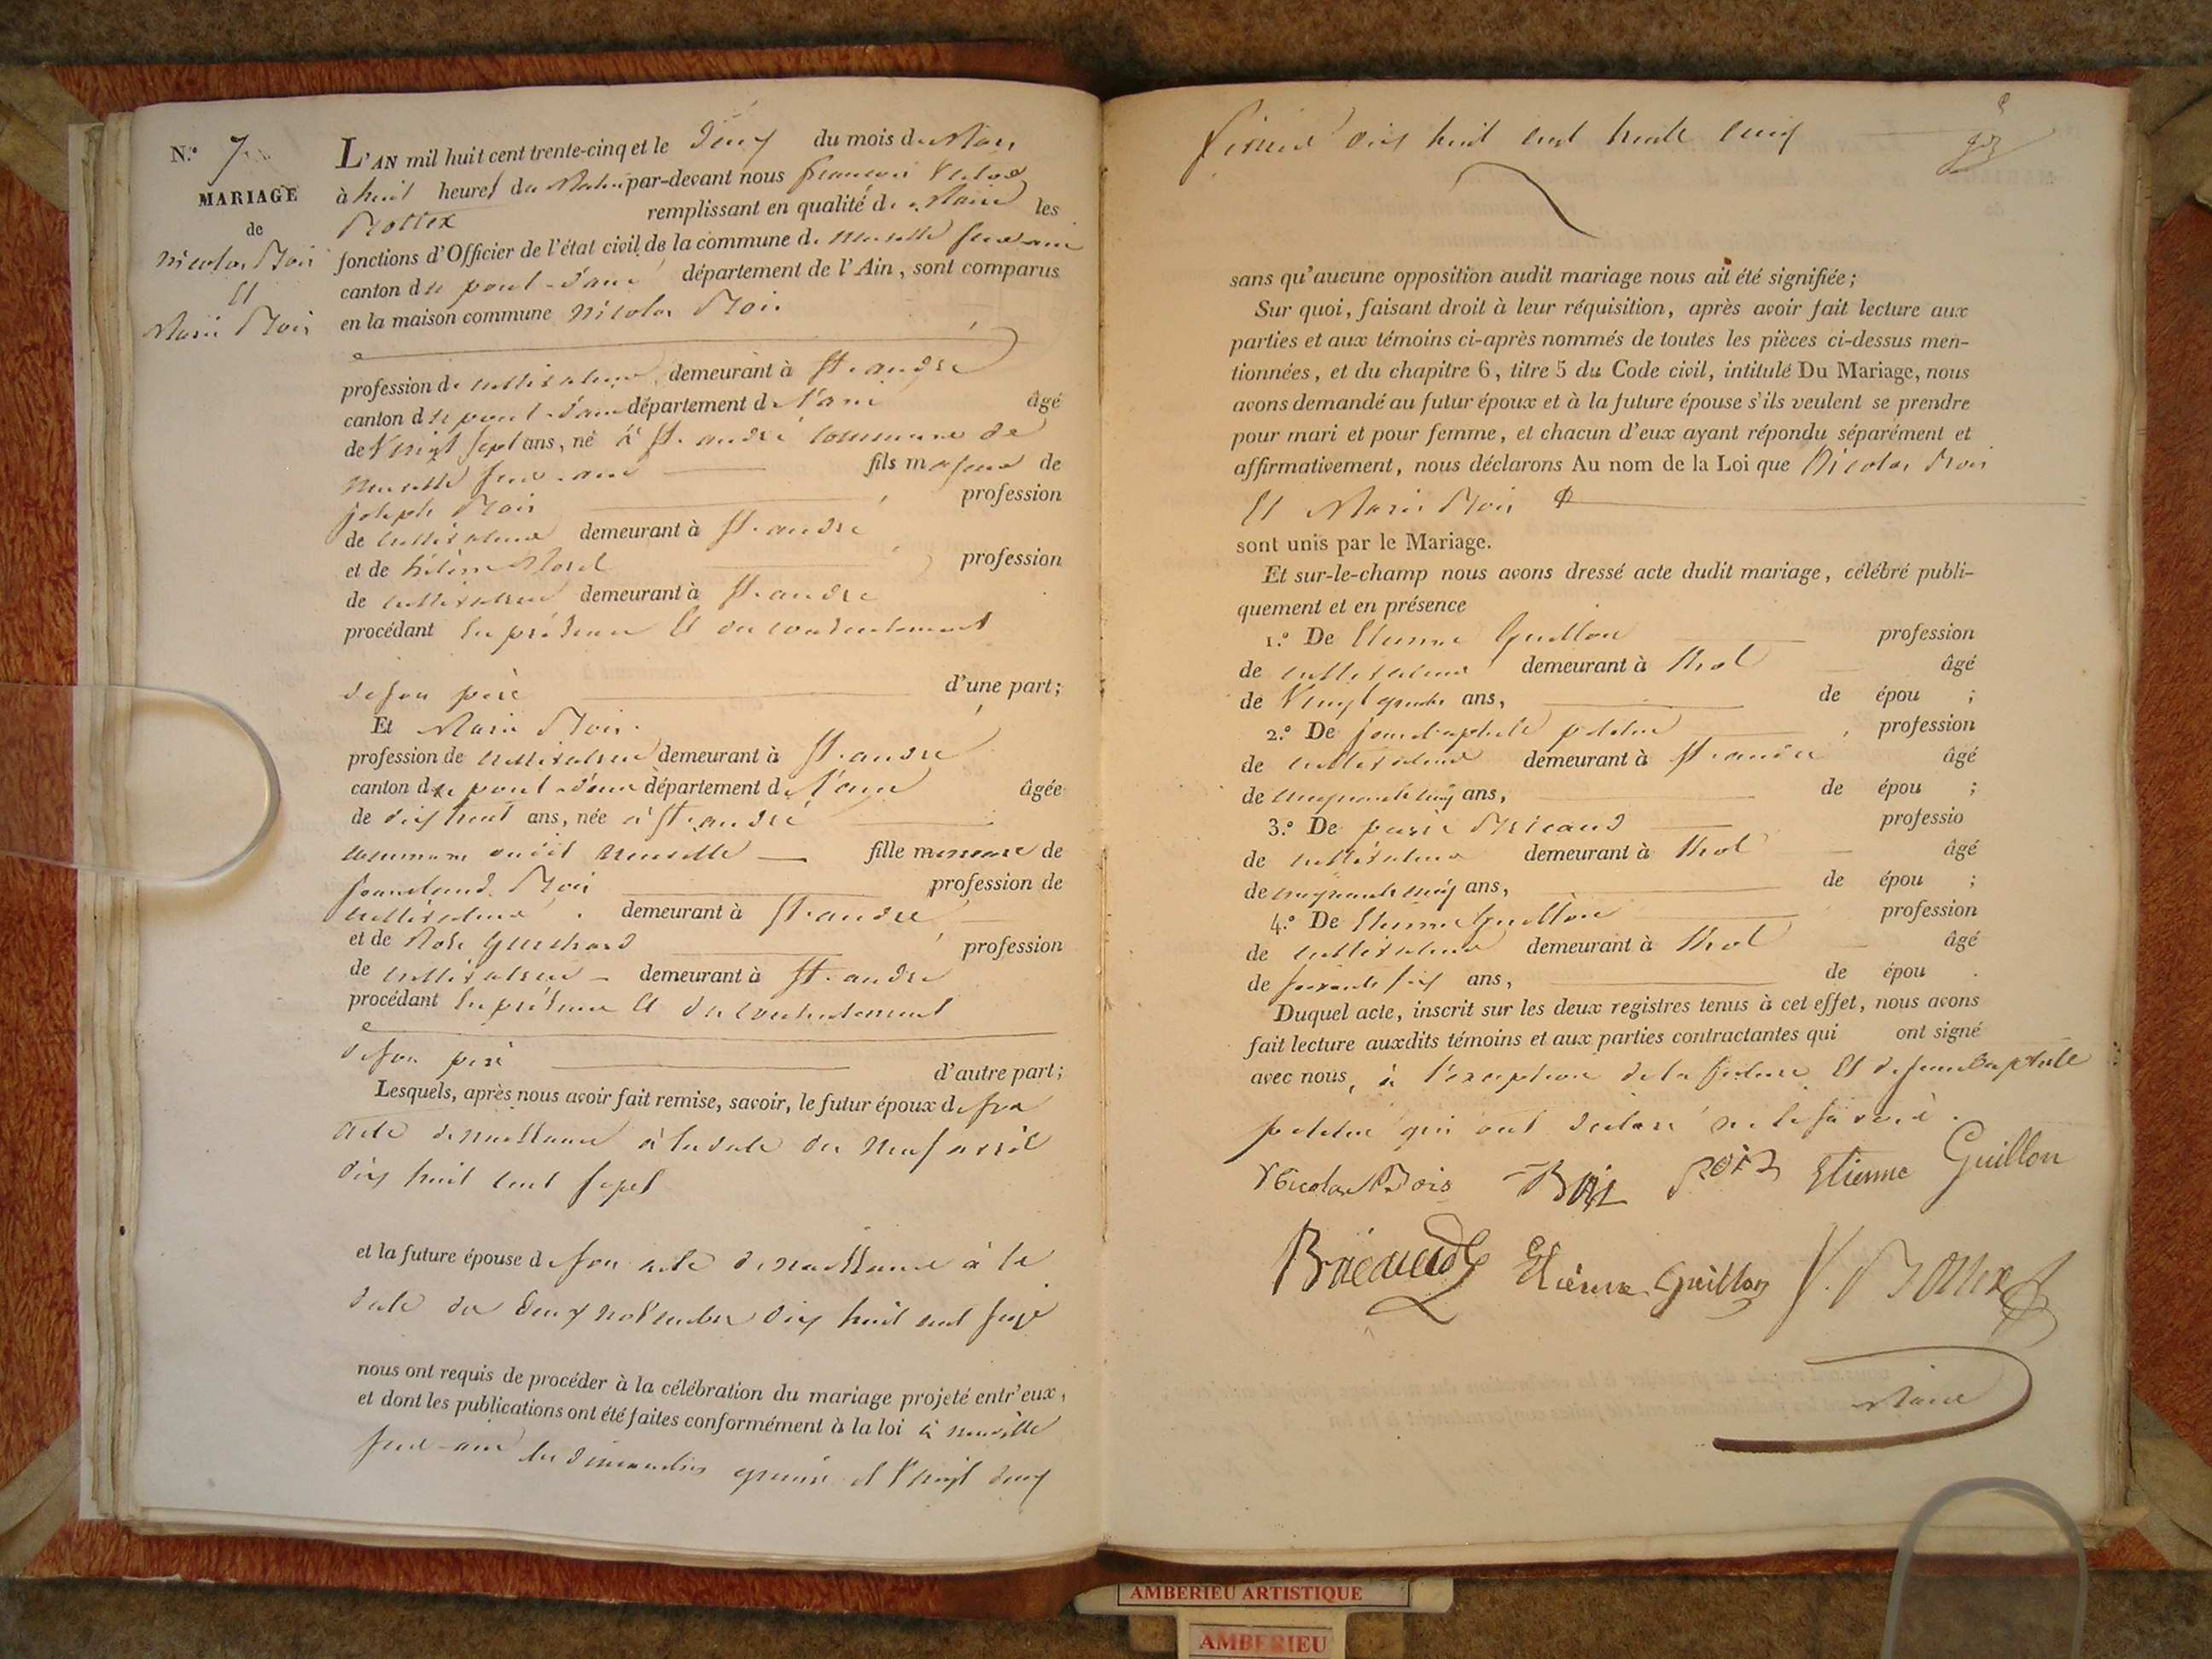 N.º 7
MARIAGE
de
Nicolas Bois
Et
Marie Bois
L'AN mil huit cent trente-cinq et le deux du mois de Mars
à huit heures du Matin par-devant nous françois Victor
Bottex remplissant en qualité de Maire les
fonctions d'Officier de l'état civil de la commune de neuville sur ain
canton de pont-d'ain département de l'Ain, sont comparus
en la maison commune Nicolas Bois
profession de cultivateur demeurant à St. andré
canton de pont-d'ain département de l'ain âgé
de Vingt sept ans, né à St. andré commune de
neuville sur-ain fils majeur de
joseph Bois profession
de cultivateur demeurant à St. andré
et de hélène Morel profession
de cultivatrice demeurant à St. andré
procédant En présence Et du consentement
de son père d'une part;
Et Marie Bois
profession de cultivatrice demeurant à St. andré
canton de pont-d'ain département de l'ain âgée
de dix huit ans, née à St. andré
commune dudit neuville fille mineure de
jean claude Bois profession de
cultivateur demeurant à St. andré
et de Rose Guichard profession
de cultivatrice demeurant à St. andré
procédant En présence Et du consentement
de son père d'autre part;
Lesquels, après nous avoir fait remise, savoir, le futur époux de son
acte de naissance à la date du neuf avril
dix huit cent sept
et la future épouse de son acte de naissance à la
date du deux novembre dix huit cent seize
nous ont requis de procéder à la célébration du mariage projeté entr'eux,
et dont les publications ont été faites conformément à la loi à neuville
sur-ain les dimanches quinze et Vingt deux
février dix huit cent trente cinq
sans qu'aucune opposition audit mariage nous ait été signifiée;
Sur quoi, faisant droit à leur réquisition, après avoir fait lecture aux
parties et aux témoins ci-après nommés de toutes les pièces ci-dessus men-
tionnées, et du chapitre 6, titre 5 du Code civil, intitulé Du Mariage, nous
avons demandé au futur époux et à la future épouse s'ils veulent se prendre
pour mari et pour femme, et chacun d'eux ayant répondu séparément et
affirmativement, nous déclarons Au nom de la Loi que Nicolas Bois
Et Marie Bois
sont unis par le Mariage.
Et sur-le-champ nous avons dressé acte dudit mariage, célébré publi-
quement et en présence
1.º De Etienne Guillon profession
de cultivateur demeurant à thol âgé
de Vingt quatre ans, de épou ;
2.º De jean baptiste profession
de cultivateur demeurant à St. andré âgé
de cinquante cinq ans, de épou ;
3.º De pierre Bricaud professio
de cultivateur demeurant à thol âgé
de cinquante cinq ans, de épou ;
4.º De Etienne Guillon profession
de cultivateur demeurant à thol âgé
de soixante six ans, de épou .
Duquel acte, inscrit sur les deux registres tenus à cet effet, nous avons
fait lecture auxdits témoins et aux parties contractantes qui ont signé
avec nous, à l'exception de la future Et de jean Baptiste
qui ont déclaré ne le savoir.
Nicolas Bois Bois Bois Etienne Guillon
Bricaud Etienne Guillon V. Bottex
Maire
AMBERIEU ARTISTIQUE
AMBERIEU